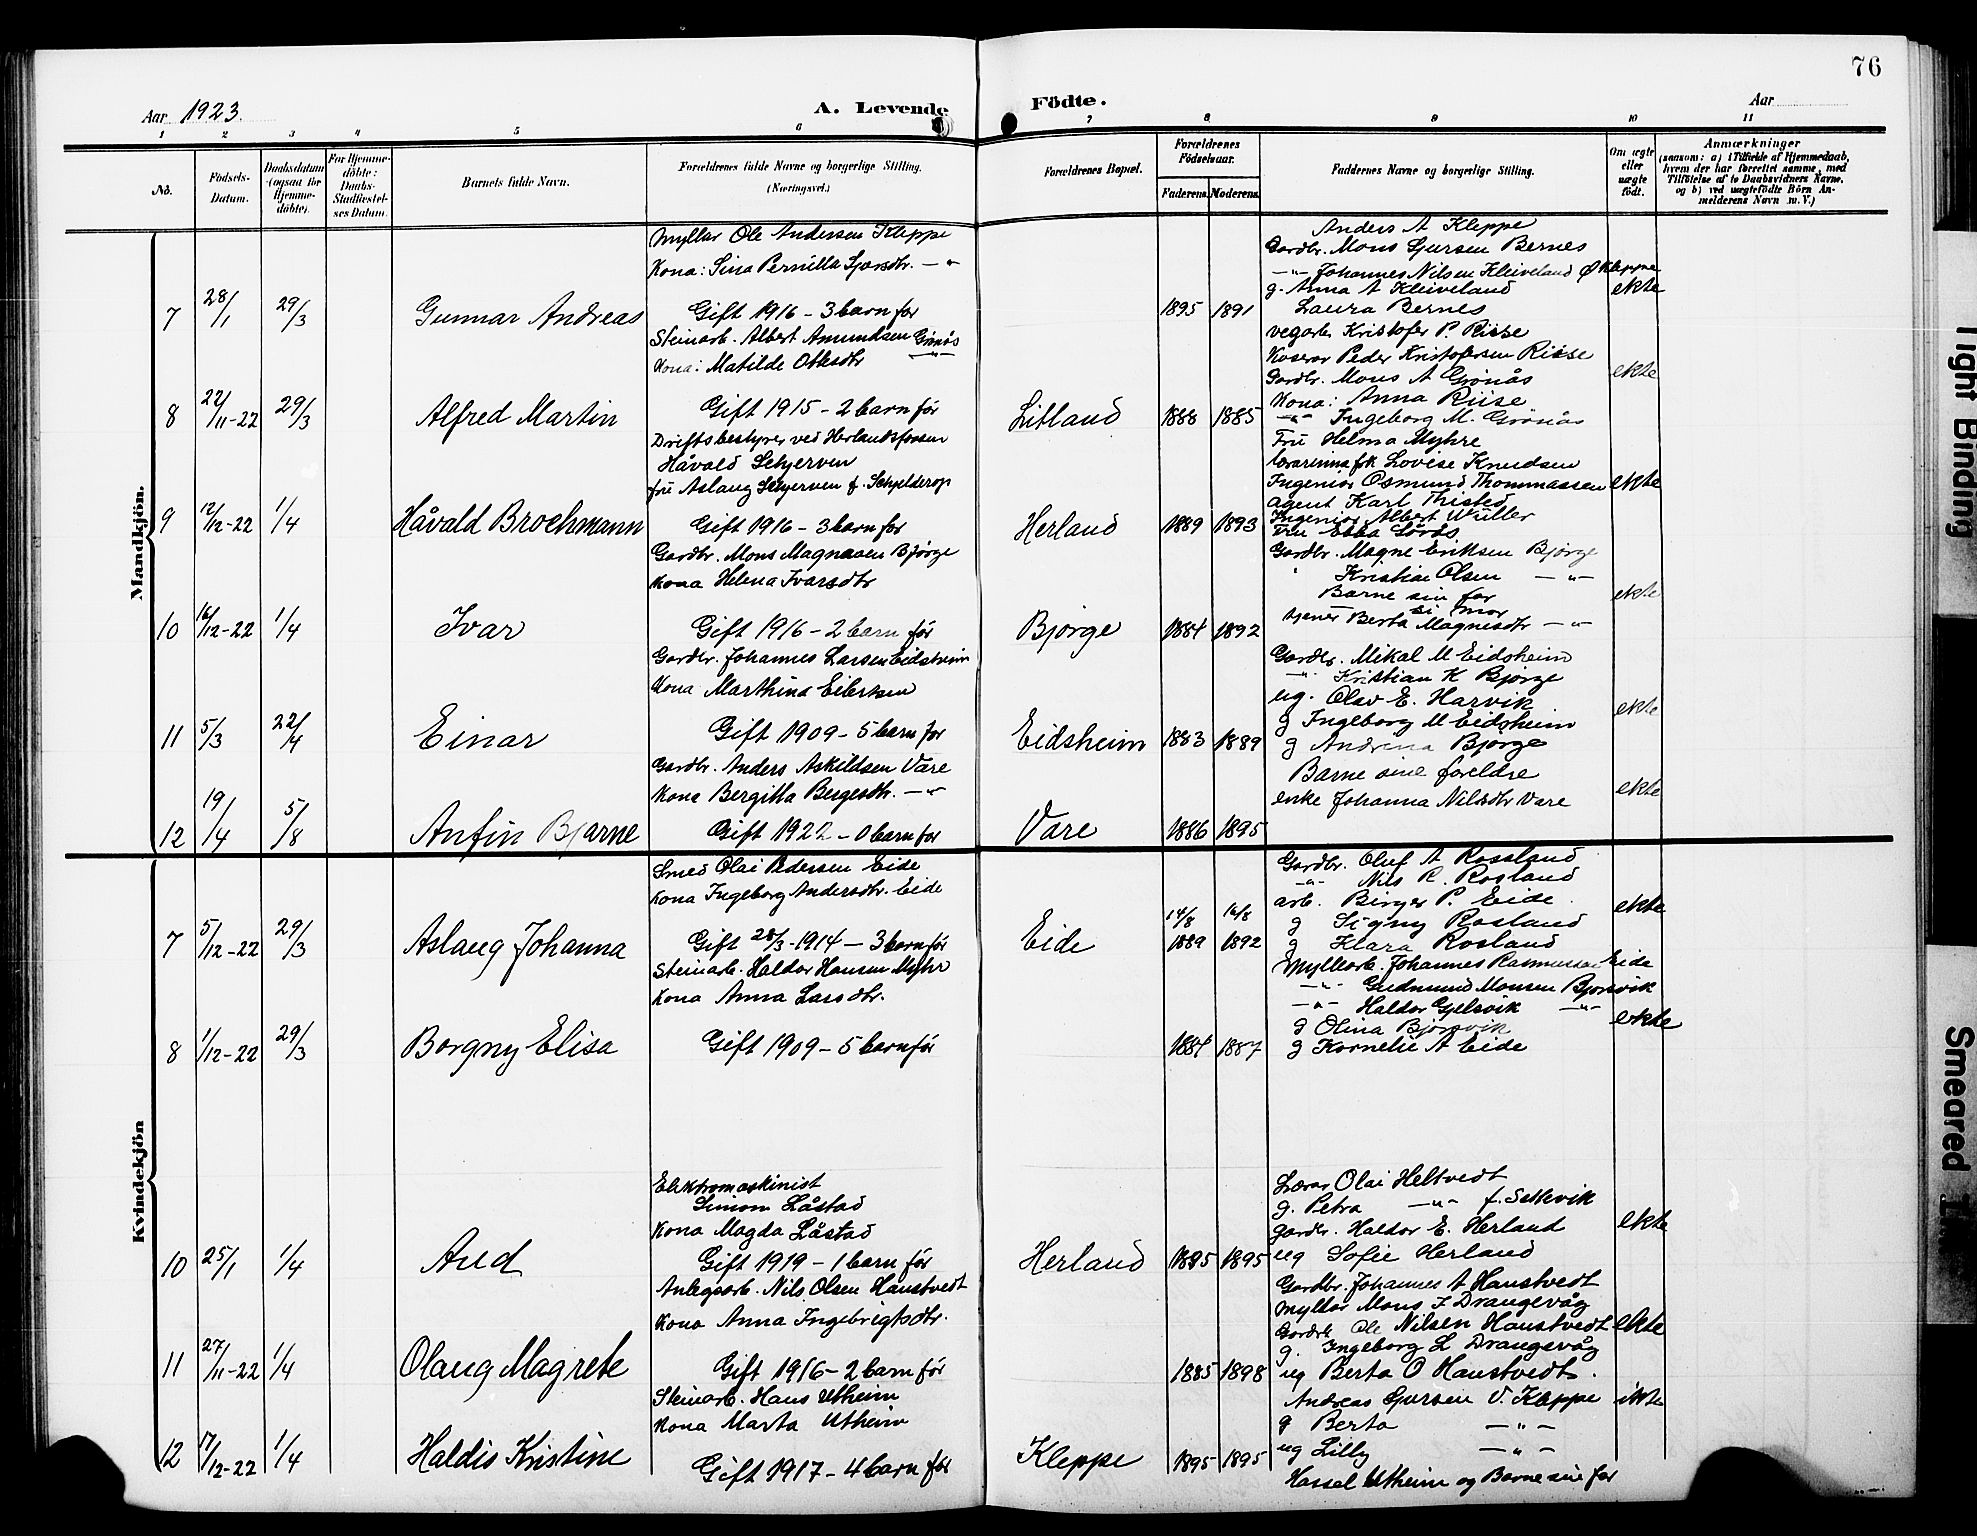 76
Aar 1923.
A. Levende Födte.
Aar
1 2 3 4 5 6 7 8 9 10 11
No.
Födsels-Datum.
Daabsdatum (ogsaa for Hjemmedöbte).
For Hjemmedöbte: Daabs-Stadfæstelses Datum.
Barnets fulde Navn.
Forældrenes fulde Navne og borgerlige Stilling. (Næringsvei.)
Forældrenes Bopæl.
Forældrenes Födselsaar.
Faderens. Moderens.
Faddrenes Navne og borgerlige Stilling.
Om ægte eller uægte födt.
Anmærkninger
(saasom: a) i Tilfælde af Hjemmedaab, hvem der har forrettet samme, med Tilföielse af to Daabsvidners Navne, og b) ved uægtefödte Börn Anmelderens Navn m.V.)
Mandkjön.
Myllar Ole Andersen Kleppe
Kona: Sina Pernilla Gjørsdtr. —"—
7 28/1 29/3 Gunnar Andreas Gift 1916 – 3 barn før 1895 1891
Anders A Kleppe
Gardbr. Mons Gjersen Bernes
—"— Johannes Nilsen Kleiveland Ø Kleppe
g. Anna A Kleiveland ekte
Laura Bernes
Steinarb. Albert Amundsen Grønås
Kona: Matilde Ottesdtr —"—
8 22/11-22 29/3 Alfred Martin Gift 1915 – 2 barn før Litland 1888 1885
vegarb Kristofer P. Riise
Kuserar Peder Kristofersen Riise
Gardbr. Mons A Grønås ekte
Kona: Anna Riise
—"— Ingeborg M. Grønås
Driftsbestyrer ved Herlandsfossen
Håvald Schjerven
fru Aslaug Schjerven f. Schjelderop
9 12/12-22 1/4 Håvald Brochmann Gift 1916 – 3 barn før Herland 1889 1893
Fru Helma Myhre
lærarinna frk Lovise Knudsen
Ingeniør Osmund Thommassen ekte
agent Karl Thisted
Ingeniør Albert Wüller
Fru Ebba Sørås
Gardbr. Mons Magnusen Bjørge
Kona Helena Ivarsdtr
10 16/12-22 1/4 Ivar Gift 1916 – 2 barn før Bjørge 1884 1892
Gardbr. Magne Eriksen Bjørge
" Kristian Olsen —"—
Barne sin far ekte
si mor
tjener Berta Magnesdtr —"—
Gardbr. Johannes Larsen Eidsheim
Kona Marthina Eilertsen
11 5/3 22/4 Einar Gift 1909 – 5 barn før Eidsheim 1883 1889
Gardbr. Mikal M Eidsheim
—"— Kristian K Bjørge
ug. Olav E. Harvik ekte
g Ingeborg M Eidsheim
g Andrina Bjørge
Gardbr. Anders Askildsen Vare
Kona Bergitta Bergesdtr. —"—
12 19/4 5/8 Anfin Bjarne Gift 1922 – 0 barn før Vare 1886 1895
Barne sine foreldre
enke Johanna Nilsdtr Vare ekte
Kvindekjön
Smed Olai Pedersen Eide
Kona Ingeborg Andersdtr. Eide
7 5/12-22 29/3 Aslaug Johanna Gift 28/3-1914 – 3 barn før Eide 14/8 1889 16/8 1892
Gardbr. Oluf A Rossland
—"— Nils R. Rosland
arb. Birger P. Eide ekte
g Signy Rosland
g Klara Rosland
Steinarb. Haldor Hansen Myhr
Kona Anna Larsdtr.
8 1/12-22 29/3 Borgny Elisa Gift 1909 – 5 barn før 1884 1887
Myllearb. Johannes Rasmussen Eide
—"— Gudmund Monsen Bjorsvik
—"— Haldor Gjelsvik —"—
g Olina Bjørsvik ekte
g Kornelie A Eide
Elektromaskinist
Simon Låstad
Kona Magda Låstad
10 25/1 1/4 Aud Gift 1919 – 1 barn før Herland 1895 1895
Lærar Olai Heltvedt
g. Petra —"— f. Settevik
gardbr. Haldor E. Herland ekte
ug Sofie Herland
Anlegsarb. Nils Olsen Haustvedt
Kona Anna Ingebrigtsdtr.
11 27/11-22 1/4 Olaug Magrete Gift 1916 – 2 barn før 1885 1898
Gardbr. Johannes A Haustvedt
Myllar Mons I Drangevåg
Gardbr Ole Nilsen Haustvedt ekte
g. Ingeborg L Drangsvåg
ug Berta O Haustvedt.
Steinarb. Hans Utheim
Kona Marta Utheim
12 17/12-22 1/4 Haldis Kristine Gift 1917 – 4 barn før Kleppe 1895 1895
Andreas Gjersen V. Kleppe ekte
g Berta —"—
ug Lilly —"—
Hassel Utheim og Barne sin far
Tight Binding
Smeared